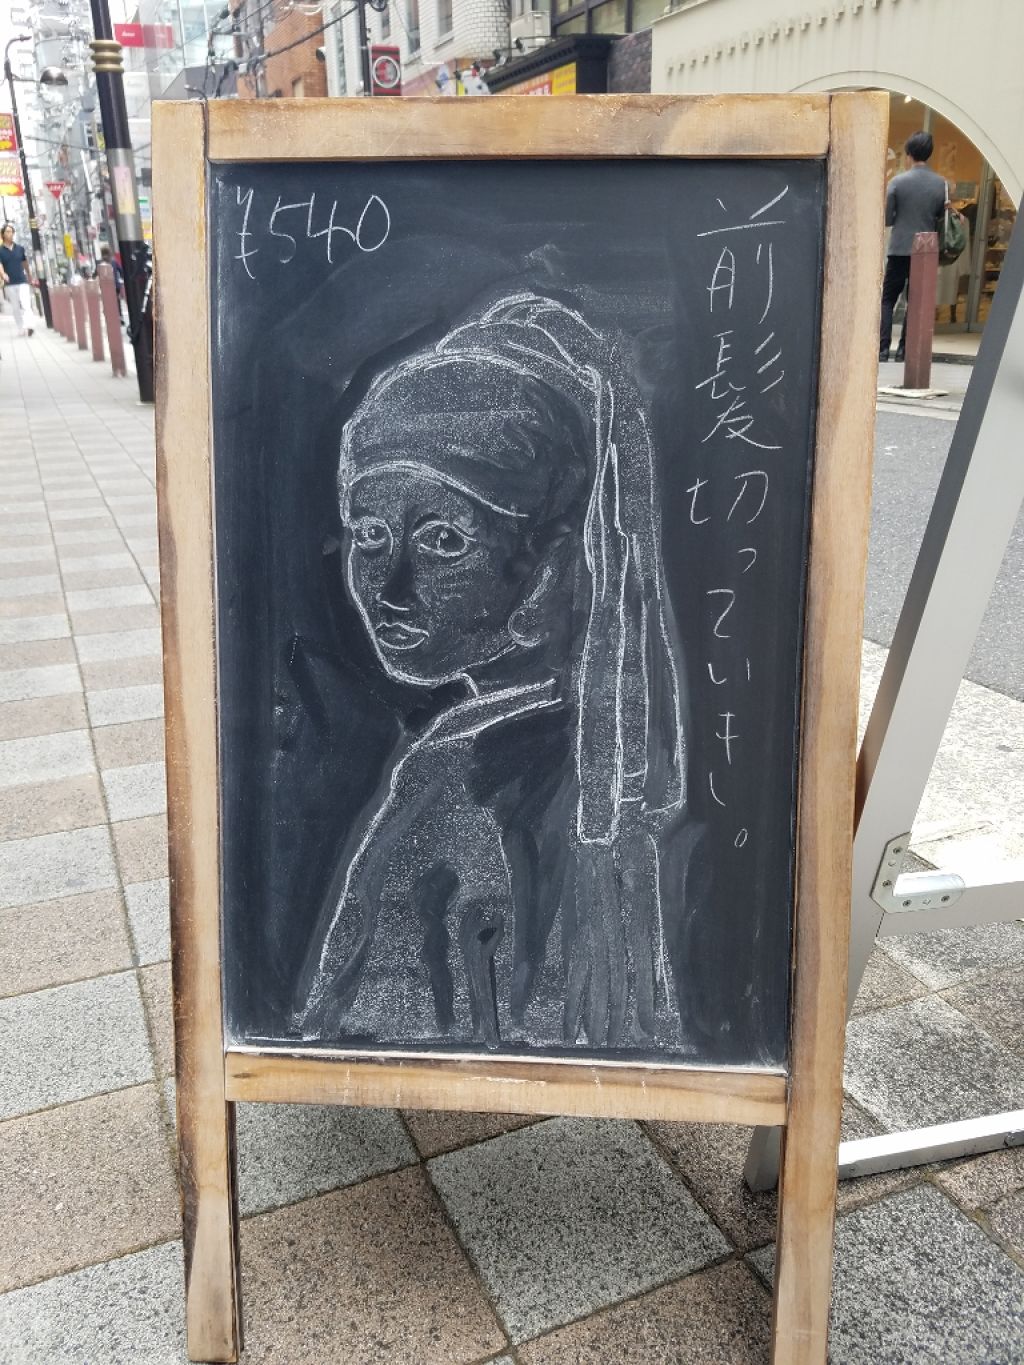 ¥540
前髪切っていきし。